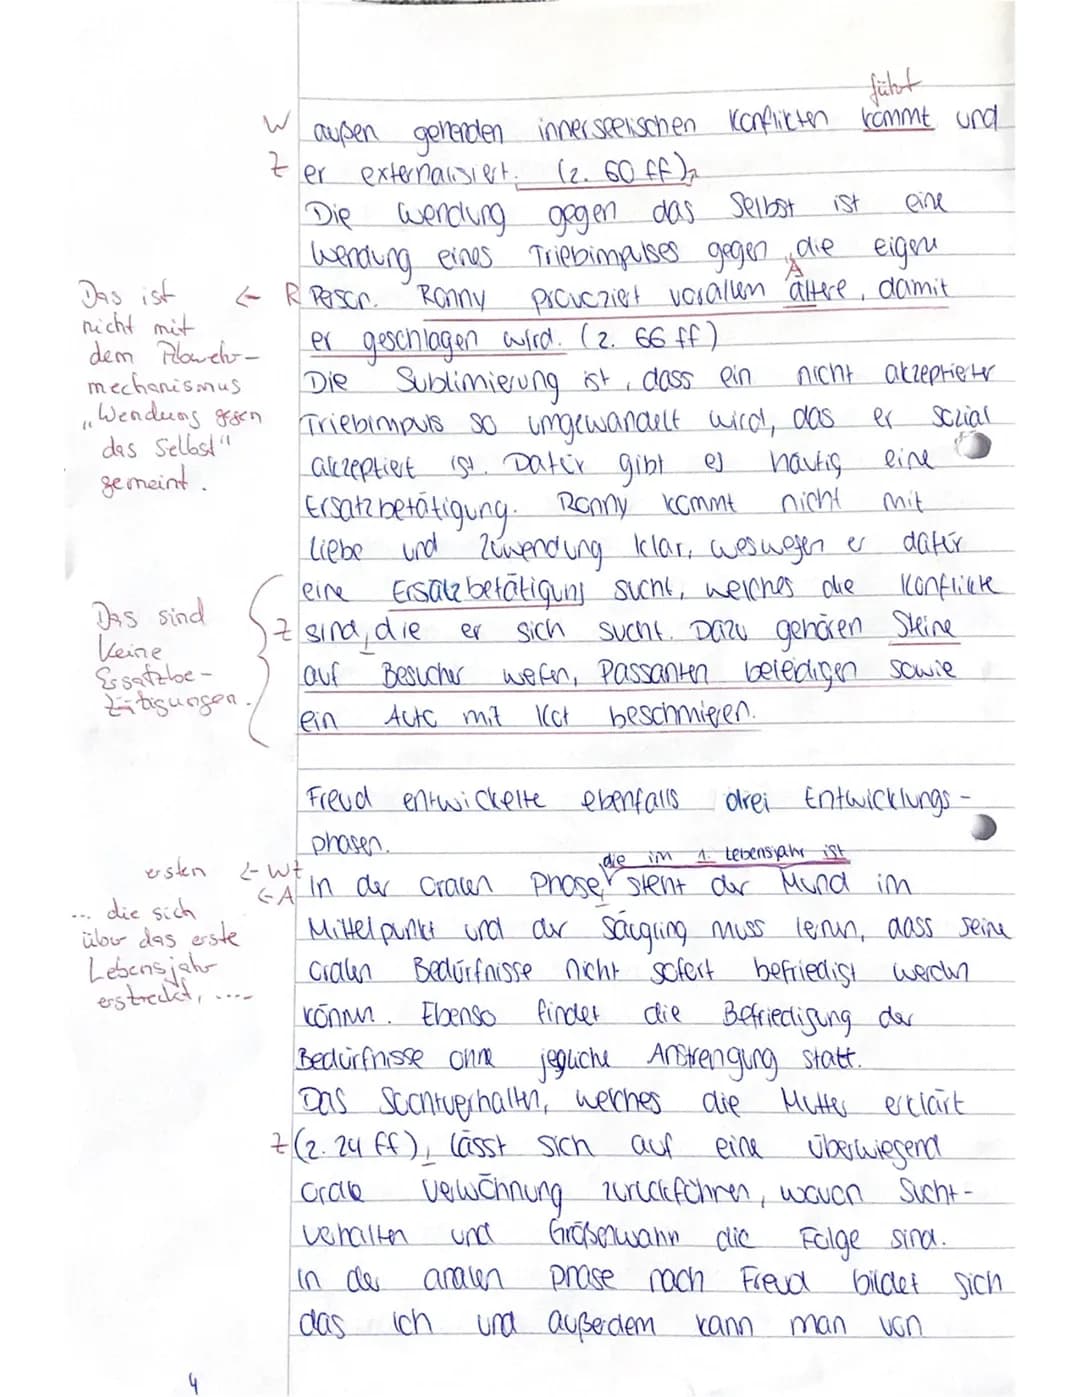 führt
W außen gehenden innerseelischen Konflikten kommt und
Z er externalisiert. (Z. 60 ff)
Die Wendung gegen das Selbst ist eine
Wendung eines Triebimpulses gegen die eigene
Das ist ← R Person. Ronny provoziert vorallem ältere, damit
A
nicht mit
er geschlagen wird. (Z. 66 ff)
dem Abwehr-
mechanismus
Die Sublimierung ist, dass ein nicht akzeptierter
"Wendung gegen
Triebimpuls so umgewandelt wird, das er sozial
das Selbst"
akzeptiert ist. Dafür gibt es häufig eine
gemeint.
Ersatzbetätigung. Ronny kommt nicht mit
Liebe und Zuwendung klar, weswegen er dafür
eine Ersatzbetätigung sucht, welches die Konflikte
Das sind
Z sind, die er sich sucht. Dazu gehören Steine
keine
Ersatzbe-
auf Besucher werfen, Passanten beleidigen sowie
tätigungen.
ein Auto mit Kot beschmieren.
Freud entwickelte ebenfalls drei Entwicklungs-
phasen.
die im 1. Lebensjahr ist
ersten ← Wt
← A In der oralen Phase steht der Mund im
... die sich
Mittelpunkt und der Säugling muss lernen, dass seine
über das erste
Lebensjahr
oralen Bedürfnisse nicht sofort befriedigt werden
erstreckt, ....
können. Ebenso findet die Befriedigung der
Bedürfnisse ohne jegliche Anstrengung statt.
Das Suchtverhalten, welches die Mutter erklärt
Z (Z. 24 ff), lässt sich auf eine überwiegend
orale Verwöhnung zurückführen, wovon Sucht-
verhalten und Größenwahn die Folge sind.
In der analen Phase nach Freud bildet sich
das Ich und außerdem kann man von
4